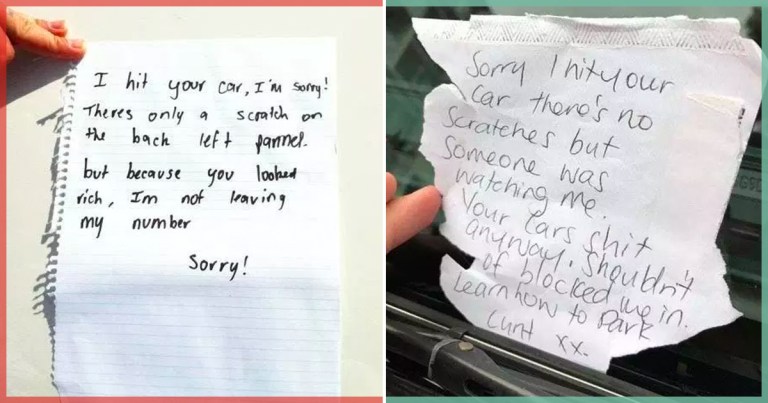 I hit your car, I'm sorry!
Theres only a scratch on
the back left pannel.
but because you looked
rich, Im not leaving
my number
Sorry!
Sorry I hit your
car there's no
scratches but
someone was
watching me.
Your cars shit
anyway, shouldn't
of blocked me in.
Learn how to park
cunt xx.